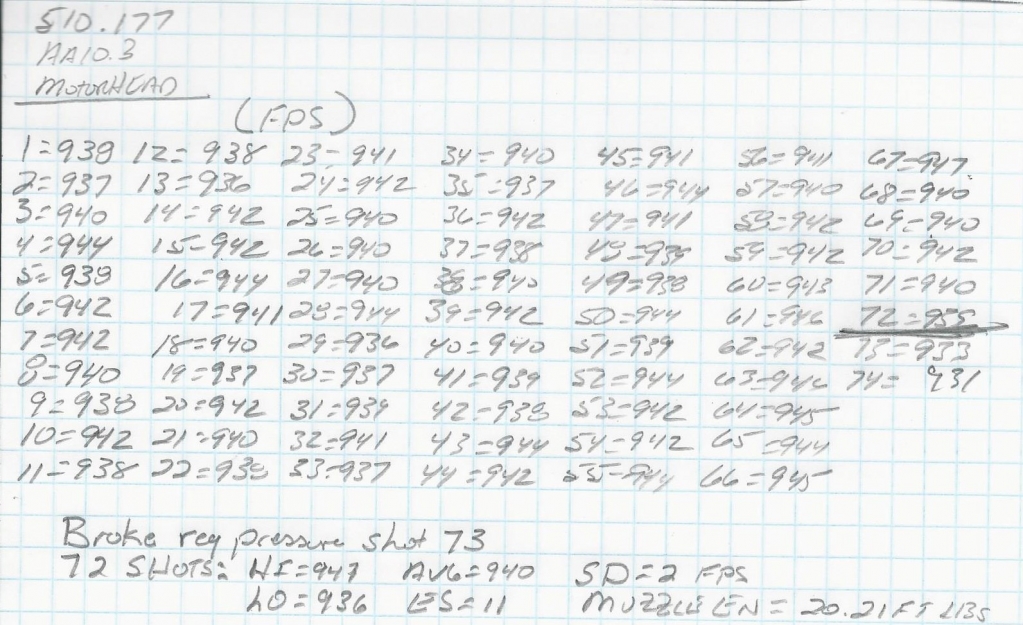 S10.177
AA10.3
MotorHEAD
(FPS)
1=939 12=938 23=941 34=940 45=941 56=941 67=947
2=937 13=936 24=942 35=937 46=944 57=940 68=940
3=940 14=942 25=940 36=942 47=941 58=942 69=940
4=944 15=942 26=940 37=938 48=939 59=942 70=942
5=939 16=944 27=940 38=940 49=938 60=943 71=940
6=942 17=941 28=944 39=942 50=944 61=946 72=
7=942 18=940 29=936 40=940 51=939 62=942 73=933
8=940 19=937 30=937 41=939 52=944 63=946 74=931
9=938 20=942 31=939 42=938 53=942 64=945
10=942 21=940 32=941 43=944 54=942 65=944
11=938 22=938 33=937 44=942 55=944 66=945
Broke reg pressure shot 73
72 SHOTS: HI=947 AVG=940 SD=2 FPS
LO=936 ES=11 MUZZLE EN=20.21 FT LBS